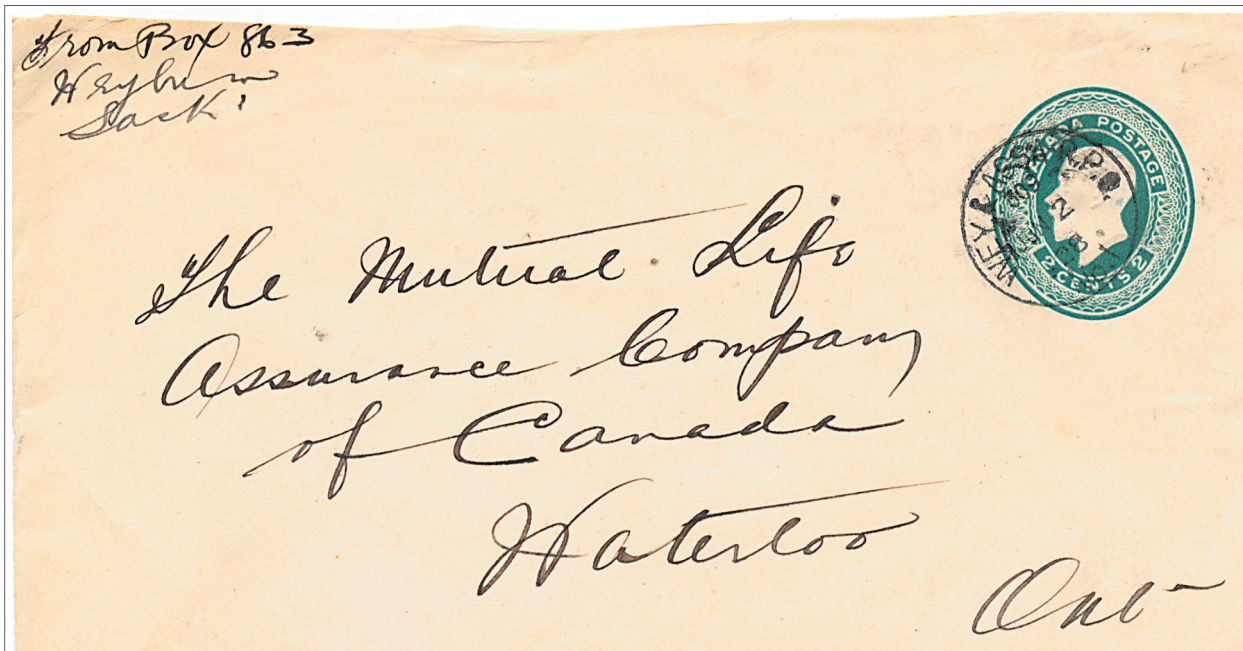 From Box 863
Weyburn
Sask
CANADA POSTAGE
2 CENTS 2
WEY. & ASSIN. R.P.O.
The Mutual Life
Assurance Company
of Canada
Waterloo
Ont